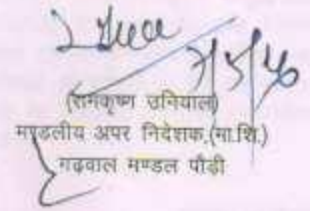 (रामकृष्ण उनियाल)
मण्डलीय अपर निदेशक,(मा.शि.)
गढवाल मण्डल पौड़ी